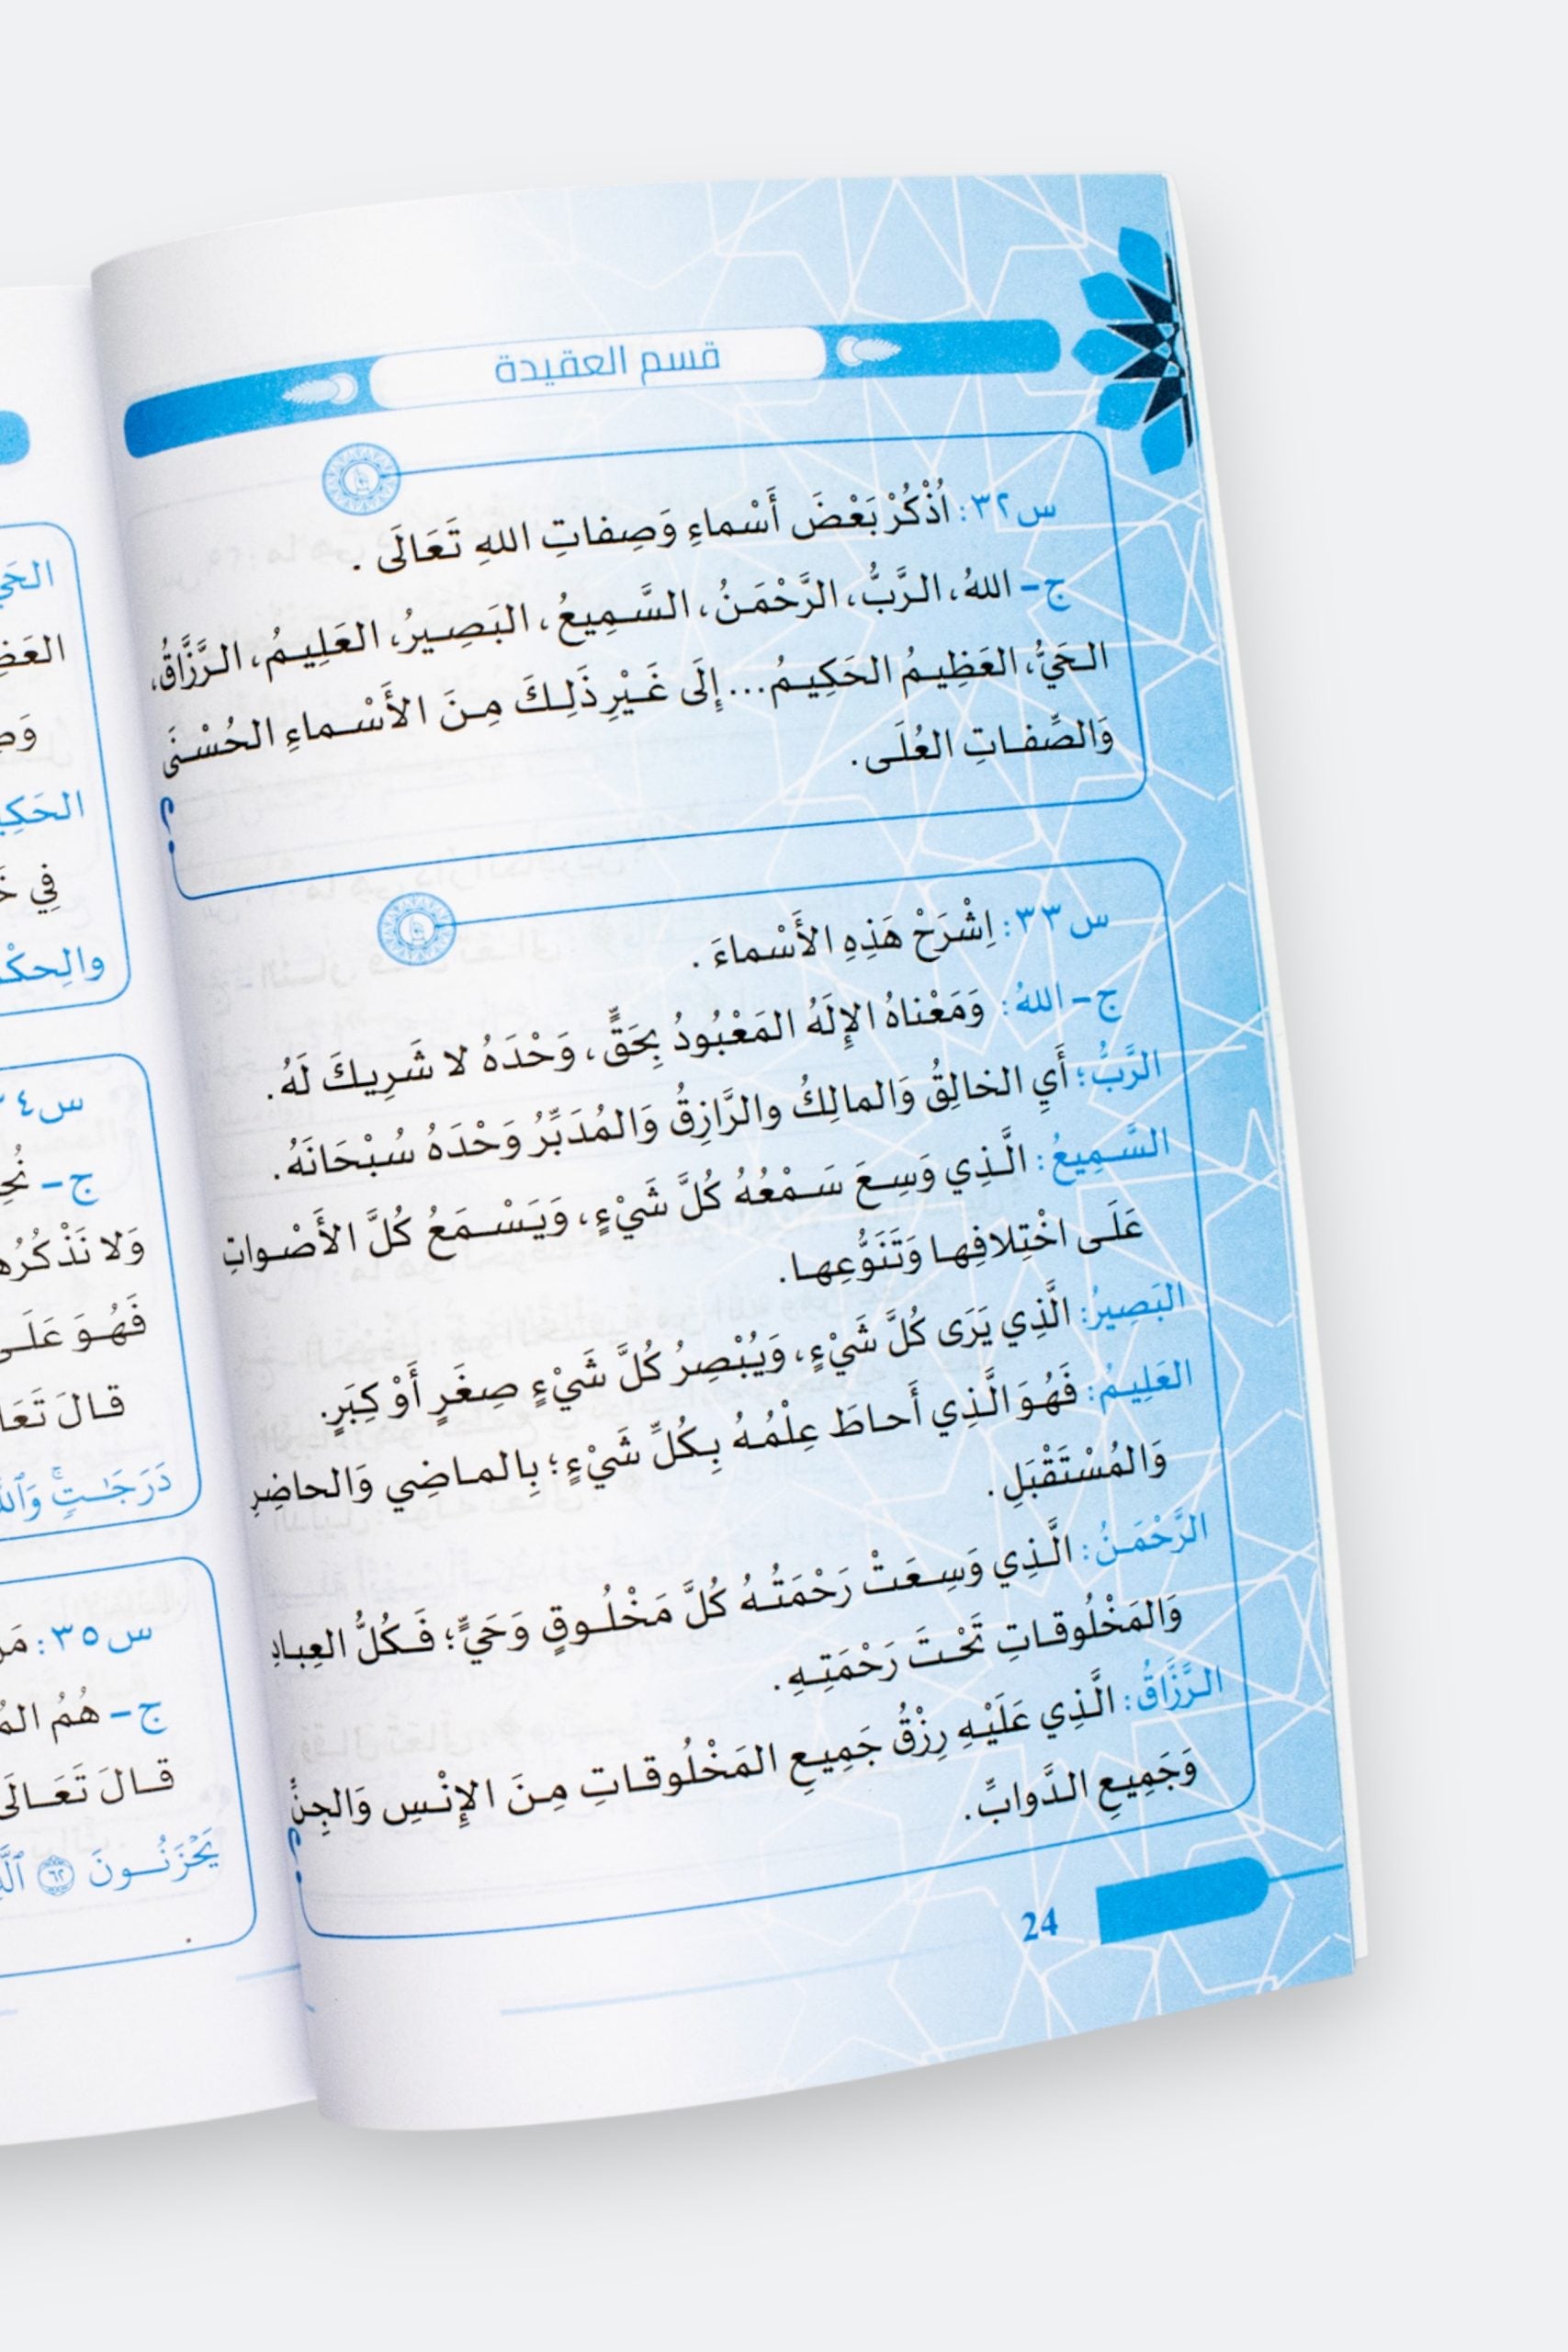 قسم العقيدة
س٣٢: اُذْكُرْ بَعْضَ أَسْماءِ وَصِفاتِ اللهِ تَعَالَى .
ج- اللهُ، الرَّبُّ، الرَّحْمَنُ، السَّمِيعُ، البَصِيرُ، العَلِيمُ، الرَّزَّاقُ،
الحَيُّ، العَظِيمُ الحَكِيمُ... إِلَى غَيْرِ ذَلِكَ مِنَ الأَسْماءِ الحُسْنَى
وَالصِّفاتِ العُلَى.
س٣٣: اِشْرَحْ هَذِهِ الأَسْماءَ .
ج- اللهُ: وَمَعْناهُ الإِلَهُ المَعْبُودُ بِحَقٍّ، وَحْدَهُ لا شَرِيكَ لَهُ.
الرَّبُّ: أَيِ الخالِقُ وَالمالِكُ والرَّازِقُ وَالمُدَبِّرُ وَحْدَهُ سُبْحَانَهُ.
السَّمِيعُ: الَّذِي وَسِعَ سَمْعُهُ كُلَّ شَيْءٍ، وَيَسْمَعُ كُلَّ الأَصْواتِ
عَلَى اخْتِلافِها وَتَنَوُّعِها.
البَصِيرُ: الَّذِي يَرَى كُلَّ شَيْءٍ، وَيُبْصِرُ كُلَّ شَيْءٍ صِغَرٍ أَوْ كِبَرٍ.
العَلِيمُ: فَهُوَ الَّذِي أَحاطَ عِلْمُهُ بِكُلِّ شَيْءٍ؛ بِالماضِي وَالحاضِرِ
وَالمُسْتَقْبَلِ.
الرَّحْمَنُ: الَّذِي وَسِعَتْ رَحْمَتُهُ كُلَّ مَخْلُوقٍ وَحَيٍّ؛ فَكُلُّ العِبادِ
وَالمَخْلُوقاتِ تَحْتَ رَحْمَتِهِ.
الرَّزَّاقُ: الَّذِي عَلَيْهِ رِزْقُ جَمِيعِ المَخْلُوقاتِ مِنَ الإِنْسِ وَالجِنِّ
وَجَمِيعِ الدَّوابِّ.
24
فِي
ج-
وَلا نَذْكُرُ
فَهُوَ عَلَى
قالَ
دَرَجَٰتٍۚ
س٣٥:
ج- هُمُ
قالَ تَعَالَى
يَحْزَنُونَ ٦٢